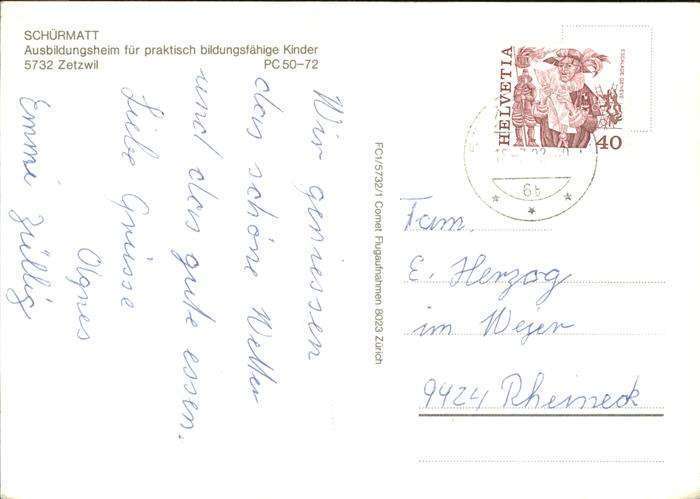 SCHÜRMATT
Ausbildungsheim für praktisch bildungsfähige Kinder
5732 Zetzwil PC 50-72
Wir geniessen
das schöne Wetter
und das gute essen.
Liebe Grüsse
Agnes
Emmi Züllig
FC1/5732/1 Comet Flugaufnahmen 8023 Zürich
HELVETIA
ESCALADE GENÈVE
40
6b
Fam.
E. Herzog
im Weier
9424 Rheineck